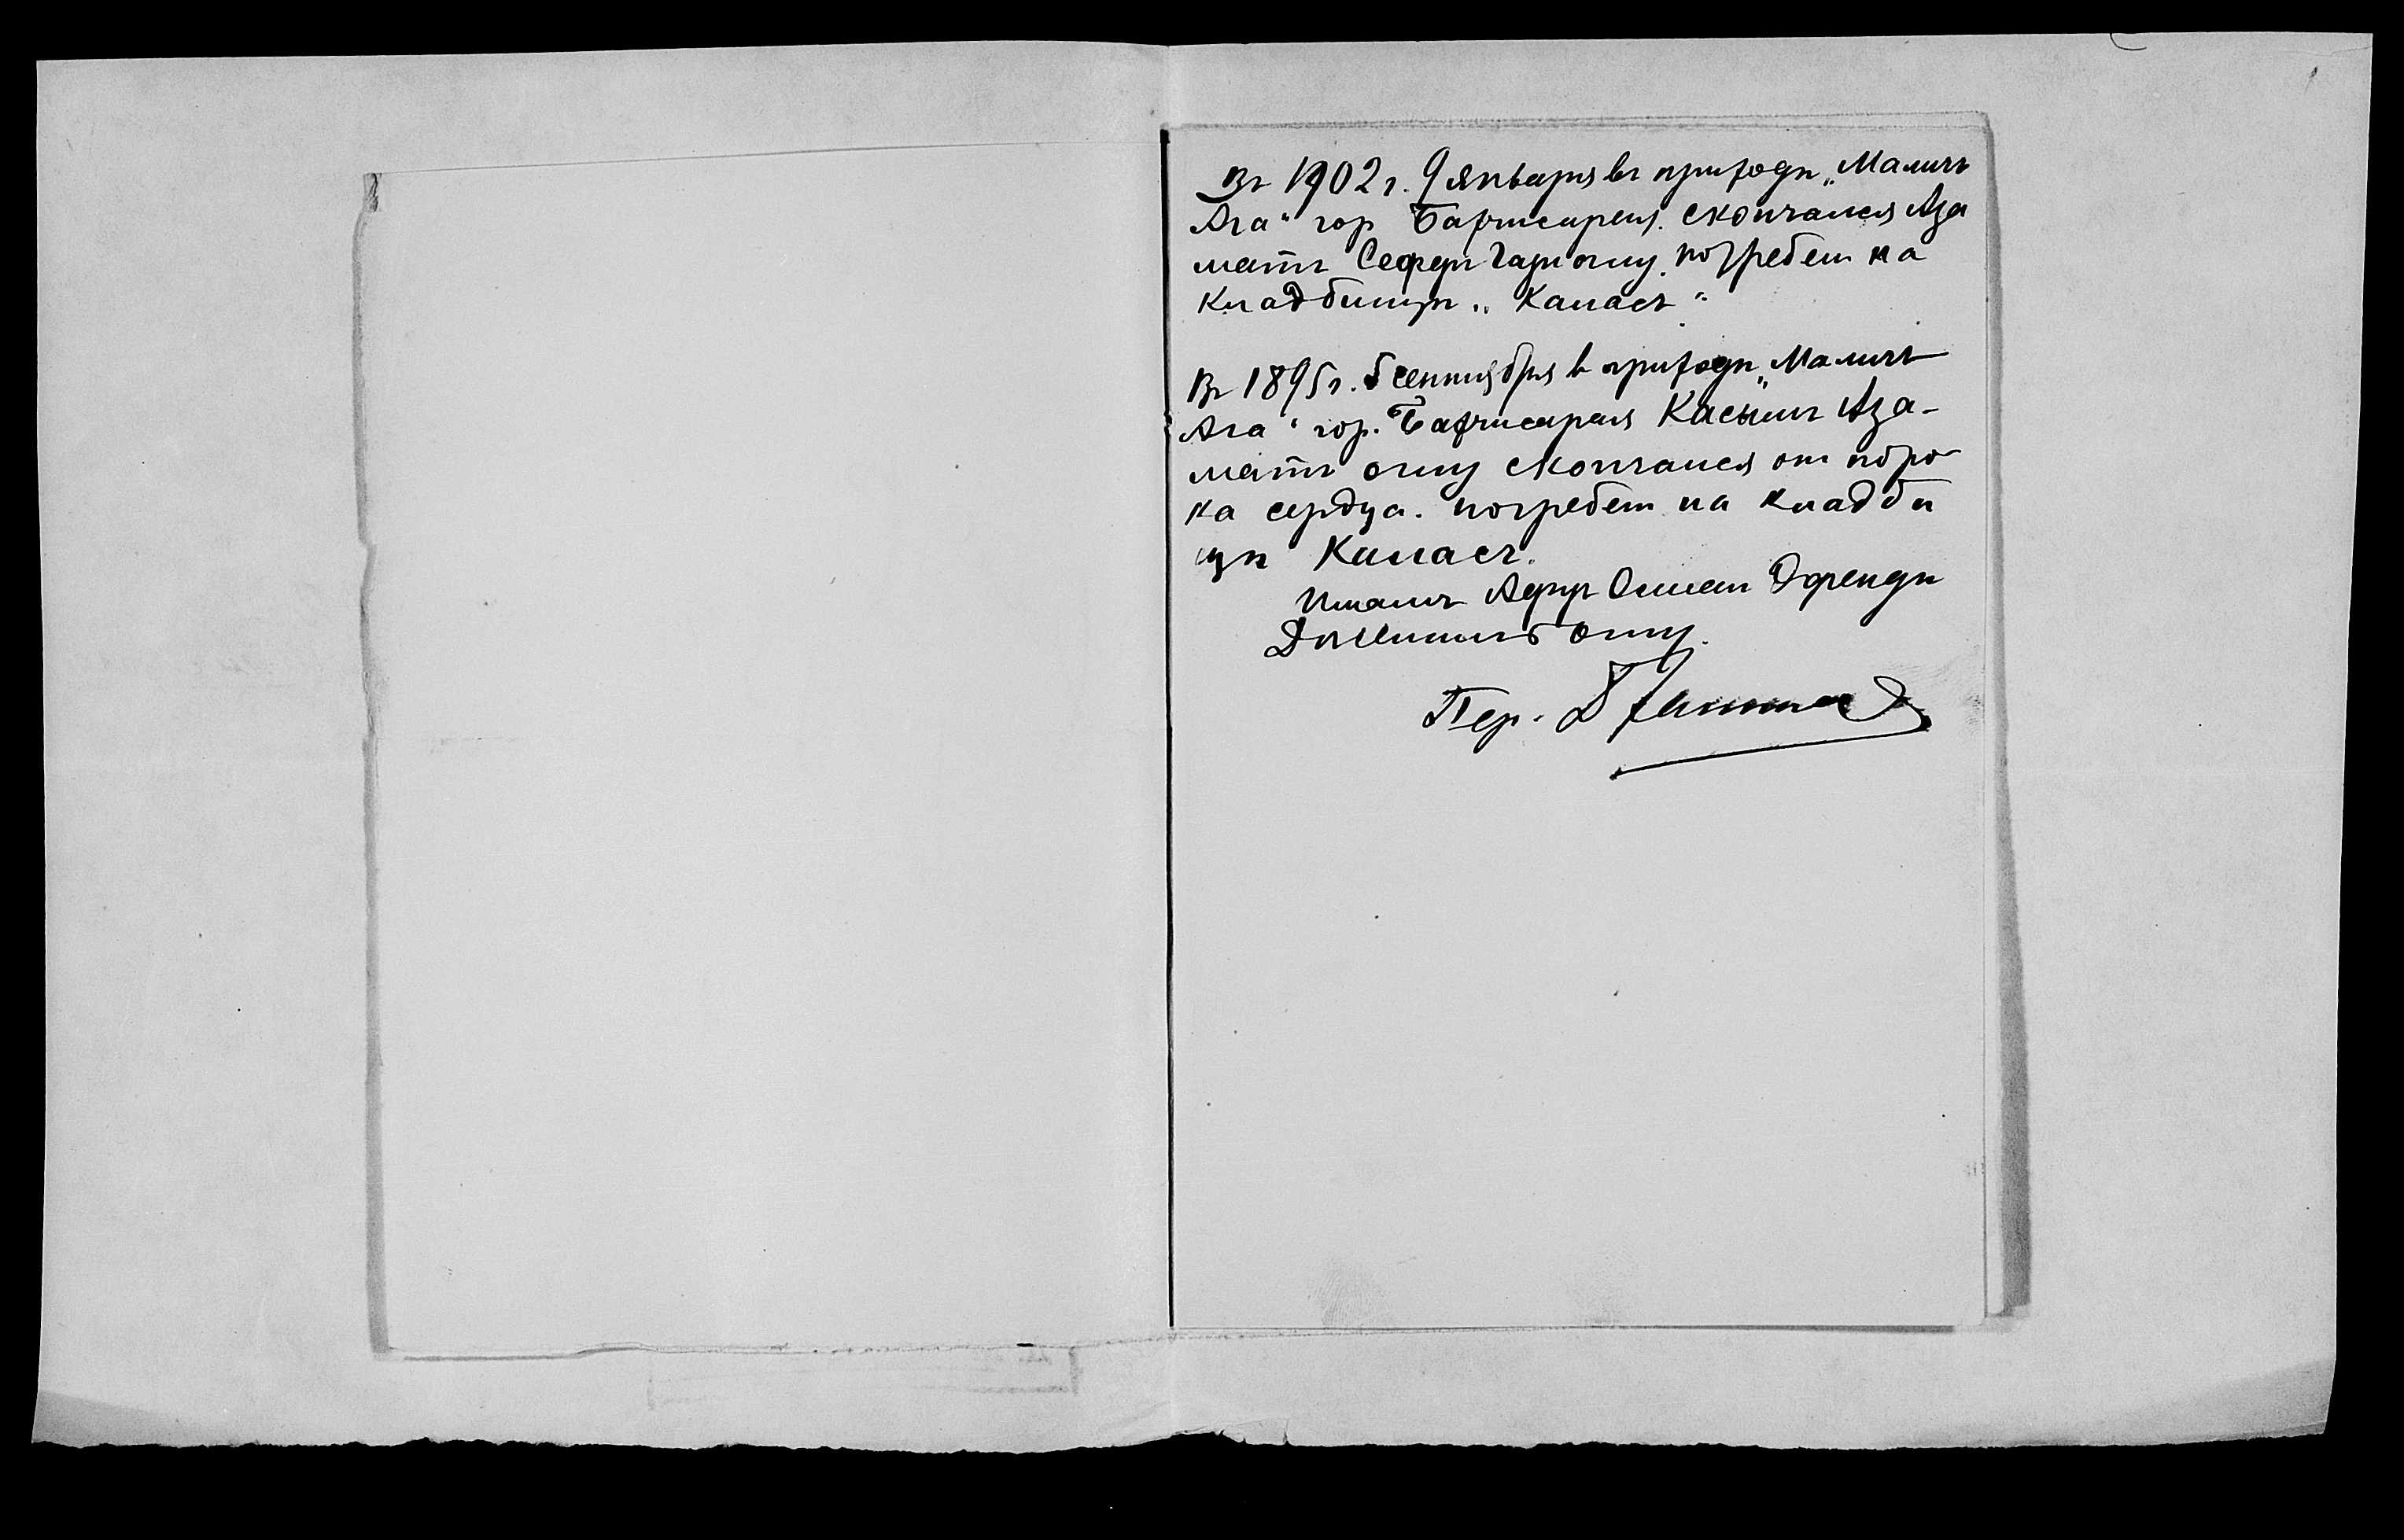 Въ 1902 г. 9 января въ приходѣ „Маличъ
Ага“ гор Бахчисарая. скончался Аза
матъ Сеферъ Гази оглу. погребен на
кладбищѣ „Каласт“
Въ 1895 г. 5 сентября в приходѣ „Маличъ
Ага“ гор. Бахчисарая Касымъ Аза-
матъ оглу скончался от поро
ка сердца. погребен на кладби
щѣ
Имамъ Осман Эфенди
оглу.
Пер.